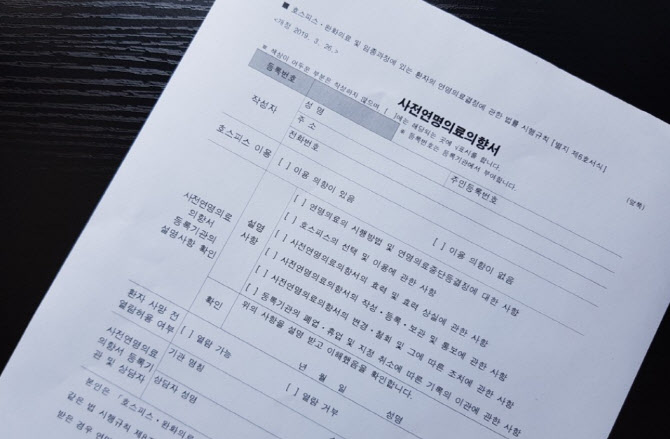 ■ 호스피스ㆍ완화의료 및 임종과정에 있는 환자의 연명의료결정에 관한 법률 시행규칙 [별지 제6호서식]
<개정 2019. 3. 26.>
사전연명의료의향서
※ 색상이 어두운 부분은 작성하지 않으며, [ ]에는 해당되는 곳에 √표시를 합니다.
(앞쪽)
등록번호
※ 등록번호는 등록기관에서 부여합니다.
작성자
성 명
주민등록번호
주 소
전화번호
호스피스 이용
[ ] 이용 의향이 있음
[ ] 이용 의향이 없음
사전연명의료
의향서
등록기관의
설명사항 확인
설명
사항
[ ] 연명의료의 시행방법 및 연명의료중단등결정에 대한 사항
[ ] 호스피스의 선택 및 이용에 관한 사항
[ ] 사전연명의료의향서의 효력 및 효력 상실에 관한 사항
[ ] 사전연명의료의향서의 작성ㆍ등록ㆍ보관 및 통보에 관한 사항
[ ] 사전연명의료의향서의 변경ㆍ철회 및 그에 따른 조치에 관한 사항
[ ] 등록기관의 폐업ㆍ휴업 및 지정 취소에 따른 기록의 이관에 관한 사항
확인
위의 사항을 설명 받고 이해했음을 확인합니다.
년 월 일
성명
환자 사망 전
열람허용 여부
[ ] 열람 가능
[ ] 열람 거부
사전연명의료
의향서 등록기
관 및 상담자
기관 명칭
상담자 성명
본인은 「호스피스ㆍ완화의료
같은 법 시행규칙 제8
받은 경우 연명